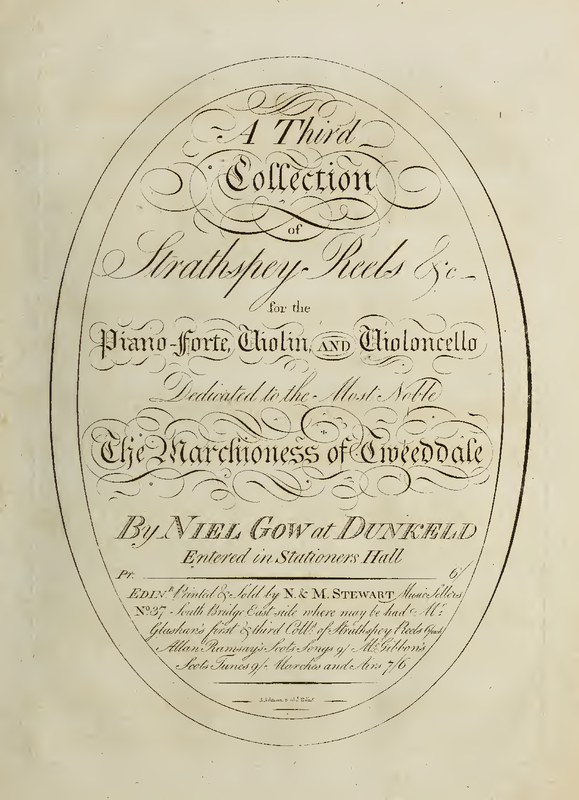 A Third
Collection
of
Strathspey Reels &c
for the
Piano-Forte, Violin, AND Violoncello
Dedicated to the Most Noble
The Marchioness of Tweeddale
By NIEL GOW at DUNKELD
Entered in Stationers Hall
Pr. 6/
EDINR. Printed & Sold by N. & M. STEWART Music Sellers
No. 37 South Bridge East side where may be had Mr.
Glashan's first & third Colln. of Strathspey Reels
Allan Ramsay's Scots Songs 9/ Mc.Gibbon's
Scots Tunes 9/ Marches and Airs 7/6